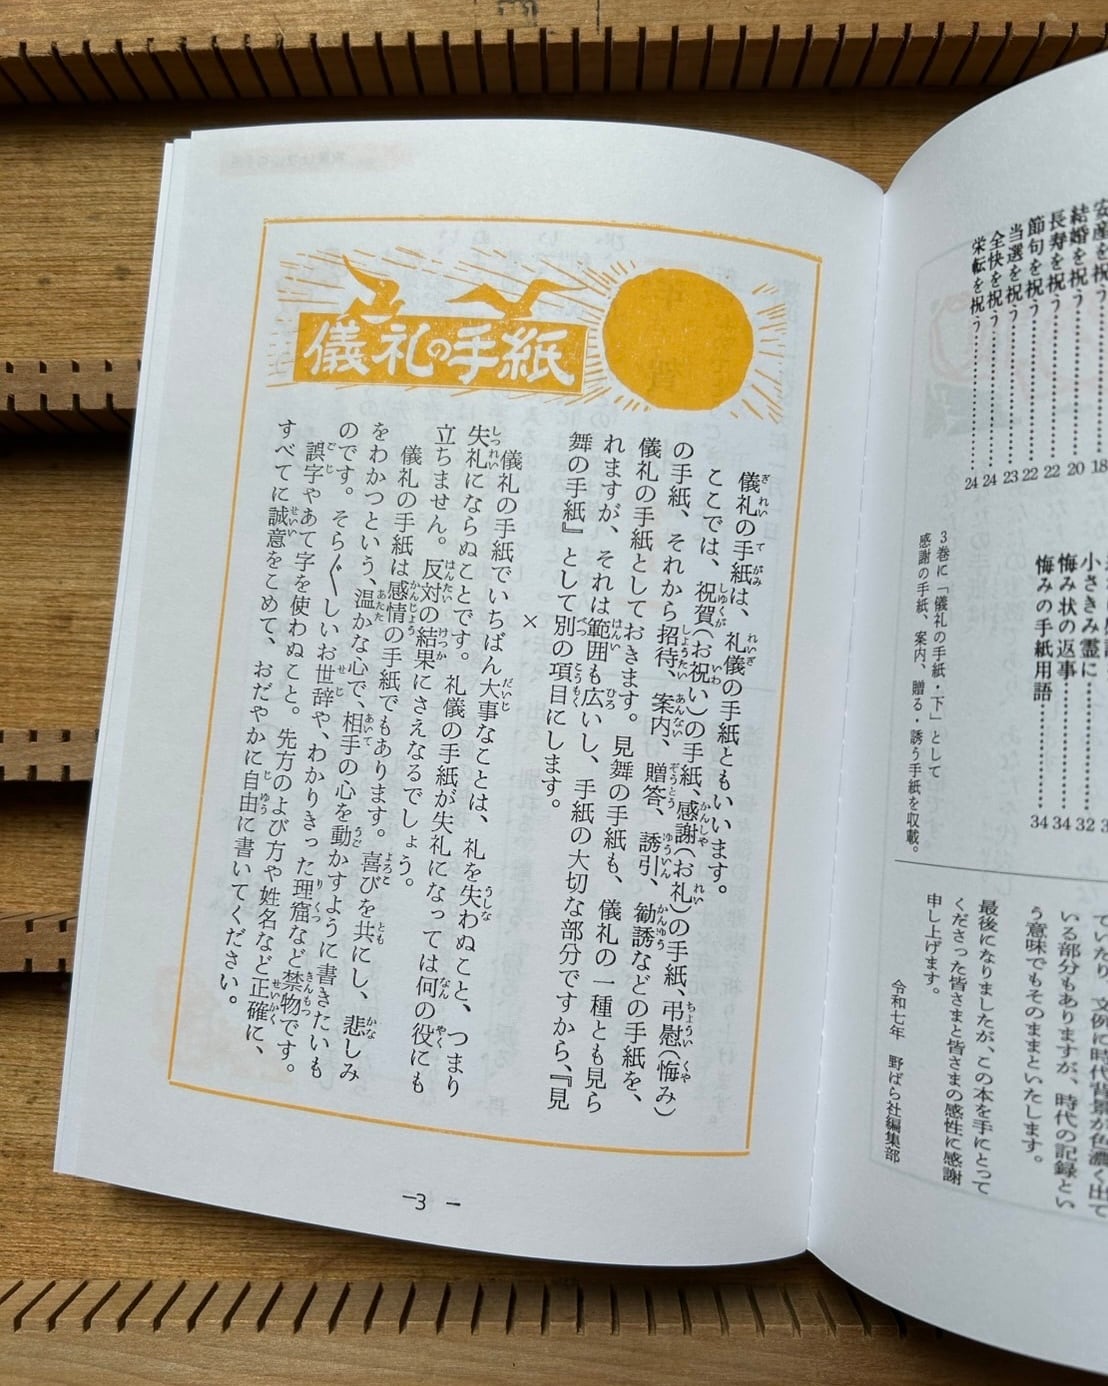 安産を祝う……………18
結婚を祝う……………20
長寿を祝う……………22
節句を祝う……………22
当選を祝う……………23
全快を祝う……………24
栄転を祝う……………24
小さきみ霊に…………32
悔み状の返事…………34
悔みの手紙用語………34
3巻に「儀礼の手紙・下」として
感謝の手紙、案内、贈る・誘う手紙を収載。
ていたり、文例に時代背景が色濃く出て
いる部分もありますが、時代の記録とい
う意味でもそのままといたします。
最後になりましたが、この本を手にとって
くださった皆さまと皆さまの感性に感謝
申し上げます。
令和七年 野ばら社編集部
儀礼の手紙
儀礼の手紙は、礼儀の手紙ともいいます。
ここでは、祝賀(お祝い)の手紙、感謝(お礼)の手紙、弔慰(悔み)
の手紙、それから招待、案内、贈答、誘引、勧誘などの手紙を、
儀礼の手紙としておきます。見舞の手紙も、儀礼の一種とも見ら
れますが、それは範囲も広いし、手紙の大切な部分ですから、『見
舞の手紙』として別の項目にします。
×
儀礼の手紙でいちばん大事なことは、礼を失わぬこと、つまり
失礼にならぬことです。礼儀の手紙が失礼になっては何の役にも
立ちません。反対の結果にさえなるでしょう。
儀礼の手紙は感情の手紙でもあります。喜びを共にし、悲しみ
をわかつという、温かな心で、相手の心を動かすように書きたいも
のです。そらぐ〵しいお世辞や、わかりきった理窟など禁物です。
誤字やあて字を使わぬこと。先方のよび方や姓名など正確に、
すべてに誠意をこめて、おだやかに自由に書いてください。
—3—